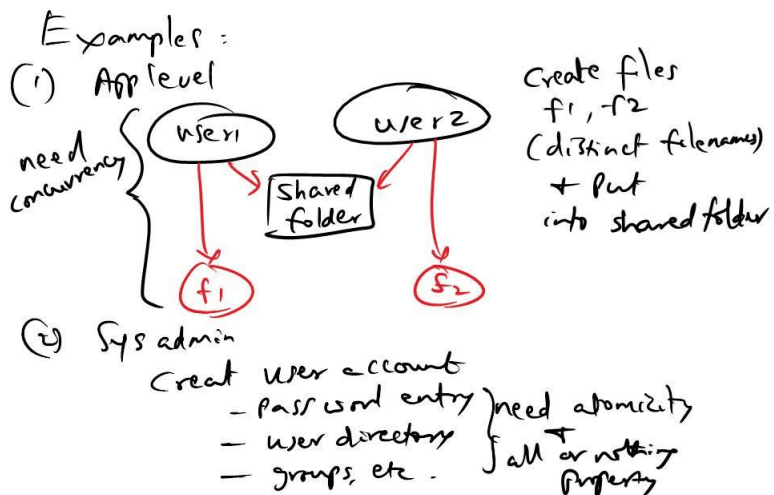 Examples:
(1) App level
need
concurrency
user1
user2
shared
folder
f1
f2
Create files
f1, f2
(distinct filenames)
+ Put
into shared folder
(2) Sys admin
Creat user account
- password entry
- user directory
- groups, etc.
need atomicity
+
all or nothing
property